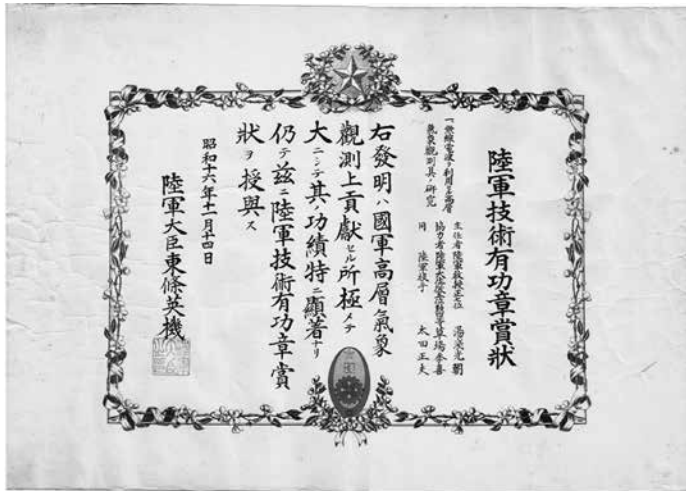 陸軍技術有功章賞狀
一、無線電波ヲ利用スル高層
氣象觀測具ノ研究
主任者 陸軍教授正七位 湯淺光朝
協力者 草場季喜
同 陸軍技手 太田正夫
右發明ハ國軍高層氣象
觀測上貢獻セル所極メテ
大ニシテ其ノ功績特ニ顯著ナリ
仍テ茲ニ陸軍技術有功章賞
狀ヲ授與ス
昭和十六年十一月十四日
陸軍大臣東條英機